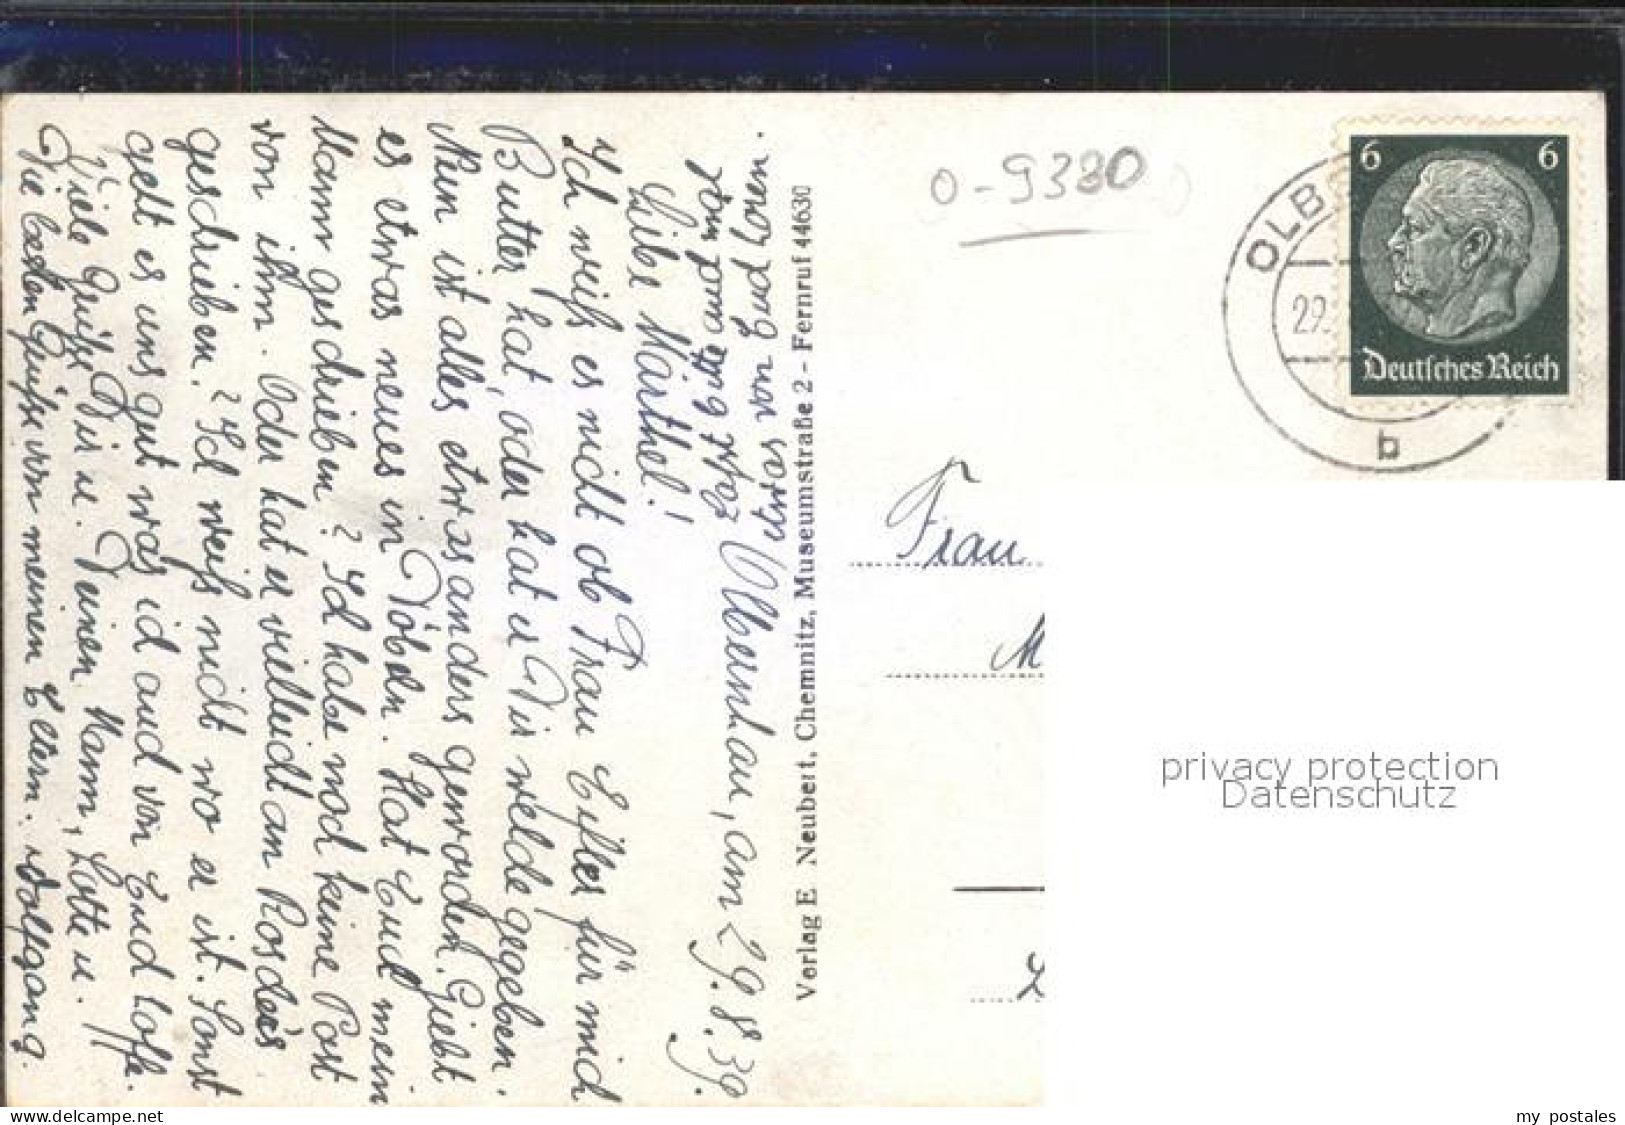 Olbernhau, am 29.8.39.
Liebe Märthel!
Ich weiß es nicht ob Frau Eifler für mich
Butter hat, oder hat er Dir welche gegeben.
Nun ist alles etwas anders geworden. Giebt
es etwas neues in Döbeln. Hat Euch mein
Mann geschrieben? Ich habe noch keine Post
von ihm. Oder hat er vielleicht an
geschrieben. Ich weiß nicht wo er ist. Sonst
geht es uns gut was ich auch von Euch hoffe.
Viele Grüße Dir u. Deinen Mann, Lotte u.
Die besten Grüße von meinen Eltern. Wolfgang.
etwas von Euch hören.
Verlag E Neubert, Chemnitz, Museumstraße 2 - Fernruf 44630
O-9330
OLB
29.
b
6 6
Deutsches Reich
Frau
M
privacy protection
Datenschutz
www.delcampe.net
my postales